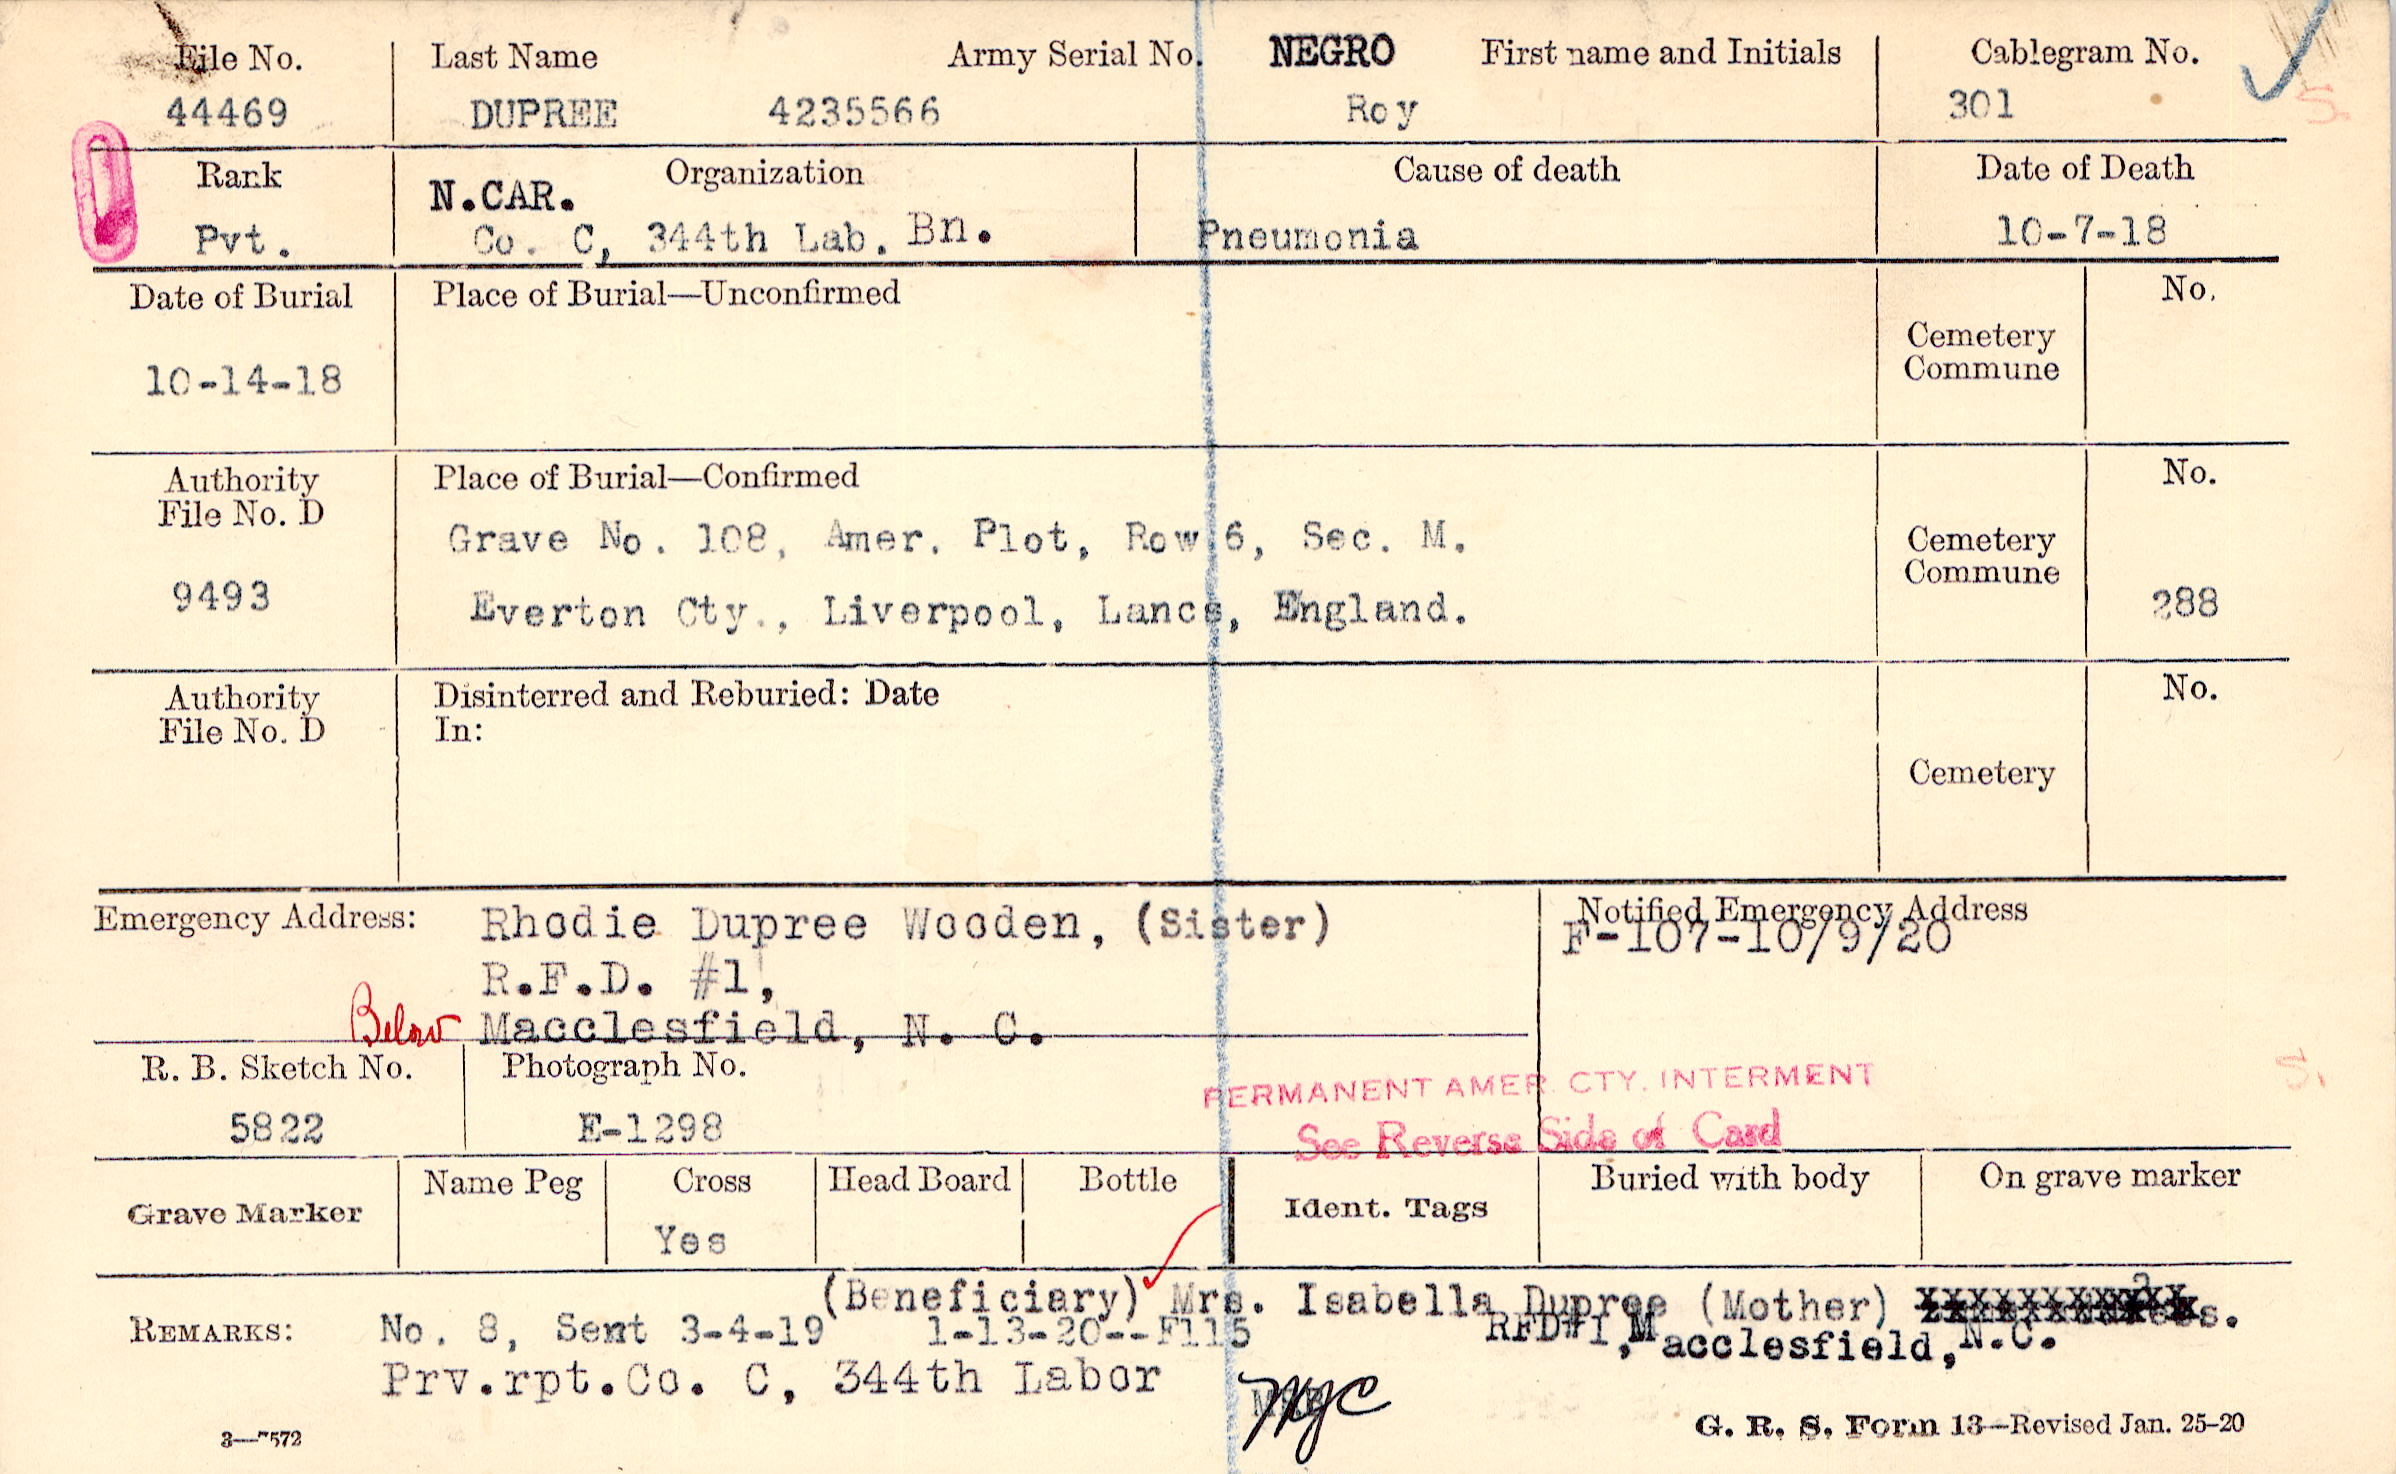 File No. Last Name Army Serial No. NEGRO First name and Initials Cablegram No.
44469 DUPREE 4235566 Roy 301
S.
Rank Organization Cause of death Date of Death
N.CAR.
Pvt. Co. C, 344th Lab. Bn. Pneumonia 10-7-18
Date of Burial Place of Burial—Unconfirmed No.
Cemetery
Commune
10-14-18
Authority Place of Burial—Confirmed No.
File No. D
Grave No. 108, Amer. Plot, Row 6, Sec. M. Cemetery
Commune
9493 Everton Cty., Liverpool, Lancs, England. 288
Authority Disinterred and Reburied: Date No.
File No. D In:
Cemetery
Emergency Address: Rhodie Dupree Wooden, (Sister) Notified Emergency Address
F-107-10/9/20
R.F.D. #1,
Below Macclesfield, N. C.
R. B. Sketch No. Photograph No. PERMANENT AMER. CTY. INTERMENT S.
5822 E-1298 See Reverse Side of Card
Grave Marker Name Peg Cross Head Board Bottle Ident. Tags Buried with body On grave marker
Yes
(Beneficiary) Mrs. Isabella Dupree (Mother)
REMARKS: No. 8, Sent 3-4-19 1-13-20--F115 RFD#1, Macclesfield, N.C.
Prv.rpt.Co. C, 344th Labor
3—7572 G. R. S. Form 13—Revised Jan. 25-20